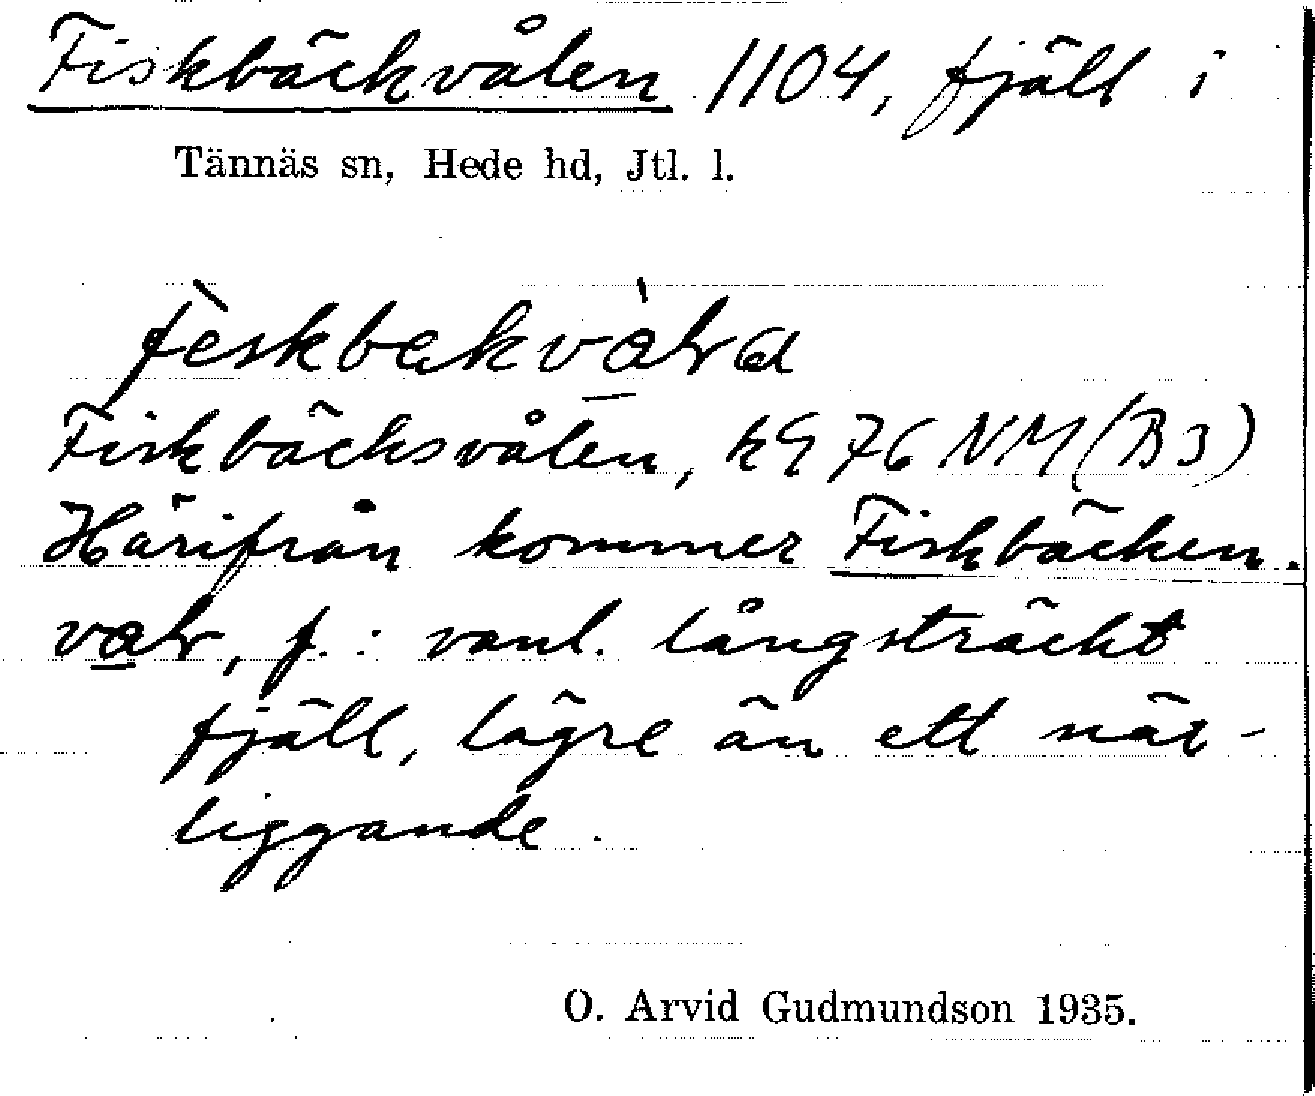 Fiskbäckvålen 1104, fjäll i
Tännäs sn, Hede hd, Jtl. l.
Fiskbäcksvålen, kG 76 NM (B3)
Härifrån kommer Fiskbäcken.
f.: vanl. långsträckt
fjäll, lägre än ett när-
liggande.
O. Arvid Gudmundson 1935.